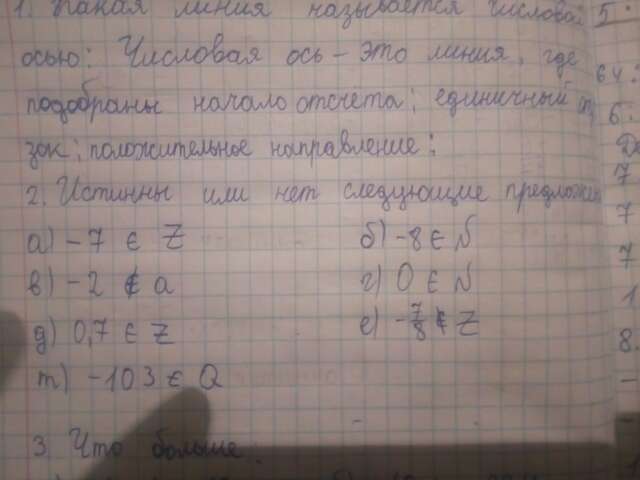 1. Какая линия называется числовой
осью: Числовая ось - это линия, где
подобраны начало отсчета; единичный
зок; положительное направление:
2. Истинны или нет следующие предложе
а) -7 ∈ Z б) -8 ∈ N
в) -2 ∉ a г) 0 ∈ N
д) 0,7 ∈ Z е) -7/8 ∉ Z
т) -103 ∈ Q
3. Что больше:
5.
64
6.
7
7
7
1
8.